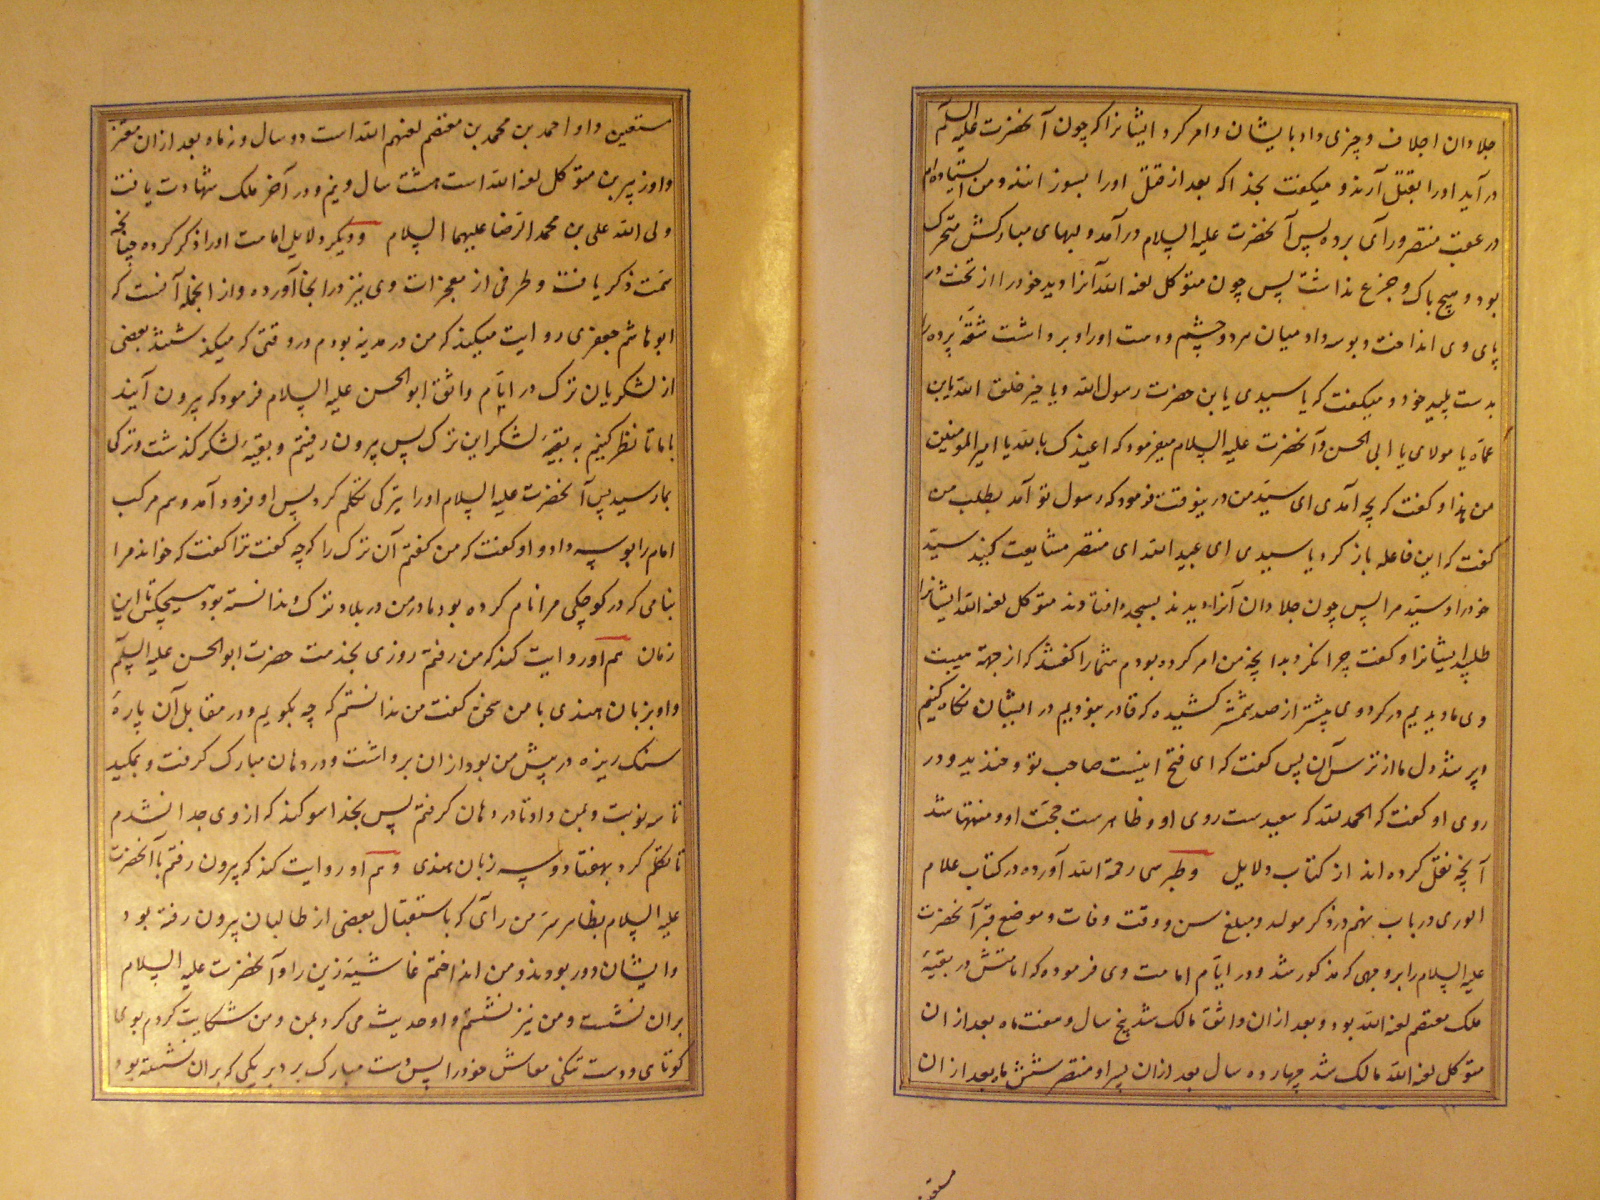 جلادان اجلاف و چیزی داد بایشان و امر کرد ایشانرا که چون آنحضرت علیه السلم
در آید اورا بقتل آرند و میکفت بخدا که بعد از قتل اورا بسوزانند و من ایستاده ام
در عقب منتصر ورای پرده پس آنحضرت علیه السلام در آمد و لبهای مبارکش متحرک
بود و هیچ باک و جزع نداشت پس چون متوکل لعنه الله آنرا دید خود را از تخت در
پای وی انداخت و بوسه داد میان هر دو چشم و دست اورا و برداشت شقهٔ پرده را
بدست پلید خود و میکفت که یا سیدی یا بن حضرت رسول الله و یا خیر خلق الله یابن
عماه یا مولای یا ابی الحسن و آنحضرت علیه السلام میفرمود که اعیذک بالله یا امیر المومنین
من هذا و کفت که بچه آمدی ای سید من درینوقت فرمود که رسول تو آمد بطلب من
کفت که این فاعله باز کرد یا سیدی ای عبید الله ای منتصر مشایعت کنید سید
خود را و سید مرا پس چون جلادان آنرا دیدند بسجده افتادند متوکل لعنه الله ایشانرا
طلبید ایشانرا و کفت چرا نکردید انچه من امر کرده بودم شما را کفتند که از جهة هیبت
وی ما دیدیم در کرد وی بیشتر از صد شمشیر کشیده که قادر نبودیم در ایشان نکاه کنیم
و پر شد دل ما از ترس آن پس کفت که ای فتح اینست صاحب تو و خندید و در
روی او کفت که الحمد لله که سعیدست روی او و ظاهرست حجت او و منتها شد
آنچه نقل کرده اند از کتاب دلایل و طبرسی رحمة الله آورده در کتاب علام
الوری در باب نهم در ذکر مولد و مبلغ سن و وقت وفات و موضع قبر آنحضرت
علیه السلام را بر وجهی که مذکور شد و در ایام امامت وی فرموده که امامتش در بقیهٔ
ملک معتصم لعنه الله بود و بعد از ان واثق مالک شد پنج سال و هفت ماه بعد از ان
متوکل لعنه الله مالک شد چهارده سال بعد ازان پسر او منتصر شش ماه بعد از ان
مستعین
مستعین و او احمد بن محمد بن معتصم لعنهم الله است دو سال و نه ماه بعد از ان معتز
و او زبیر بن متوکل لعنه الله است هشت سال و نیم و در آخر ملک شهادت یافت
ولی الله علی بن محمد الرضا علیهما السلام و دیکر دلایل امامت اورا ذکر کرده چنانچه
سمت ذکر یافت و طرفی از معجزات وی نیز در انجا آورده و از انجمله آنست که
ابو هاشم جعفری روایت میکند که من در مدینه بودم در وقتی که میکذشتند بعضی
از لشکریان ترک در ایام واثق ابو الحسن علیه السلام فرمود که بیرون آیید
باما تا نظر کنیم به بقیهٔ لشکر این ترک پس بیرون رفتیم و بقیهٔ لشکر کذشت و ترکی
بما رسید پس آنحضرت علیه السلام اورا بترکی تکلم کرد پس او فرود آمد و سم مرکب
امام را بوسه داد و او کفت که من کفتم آن ترک را که چه کفت ترا کفت که خواند مرا
بنامی که در کوچکی مرا نام کرده بود مادر من در بلاد ترک و ندانسته بود هیچکس تا این
زمان هم او روایت کند که من رفتم روزی بخدمت حضرت ابو الحسن علیه السلم
و او بزبان هندی با من سخن کفت من ندانستم که چه بکویم و در مقابل آن پارهٔ
سنک ریزه در پیش من بود ازان برداشت و در دهان مبارک کرفت و بمکید
تا سه نوبت و بمن داد تا در دهان کرفتم پس بخدا سوکند که از وی جدا نشدم
تا تکلم کرد بهفتاد و سه زبان هندی و هم او روایت کند که بیرون رفتم با آنحضرت
علیه السلام بظاهر سر من رآی که باستقبال بعضی از طالبیان بیرون رفته بود
و ایشان دور بودند و من انداختم غاشیهٔ زین را و آنحضرت علیه السلام
بران نشست و من نیز نشستم و او حدیث می کرد بمن و من شکایت کردم بوی
کوتاهی و دست تنکی معاش خود را پس دست مبارک برد بر یکی که بران نشسته بود